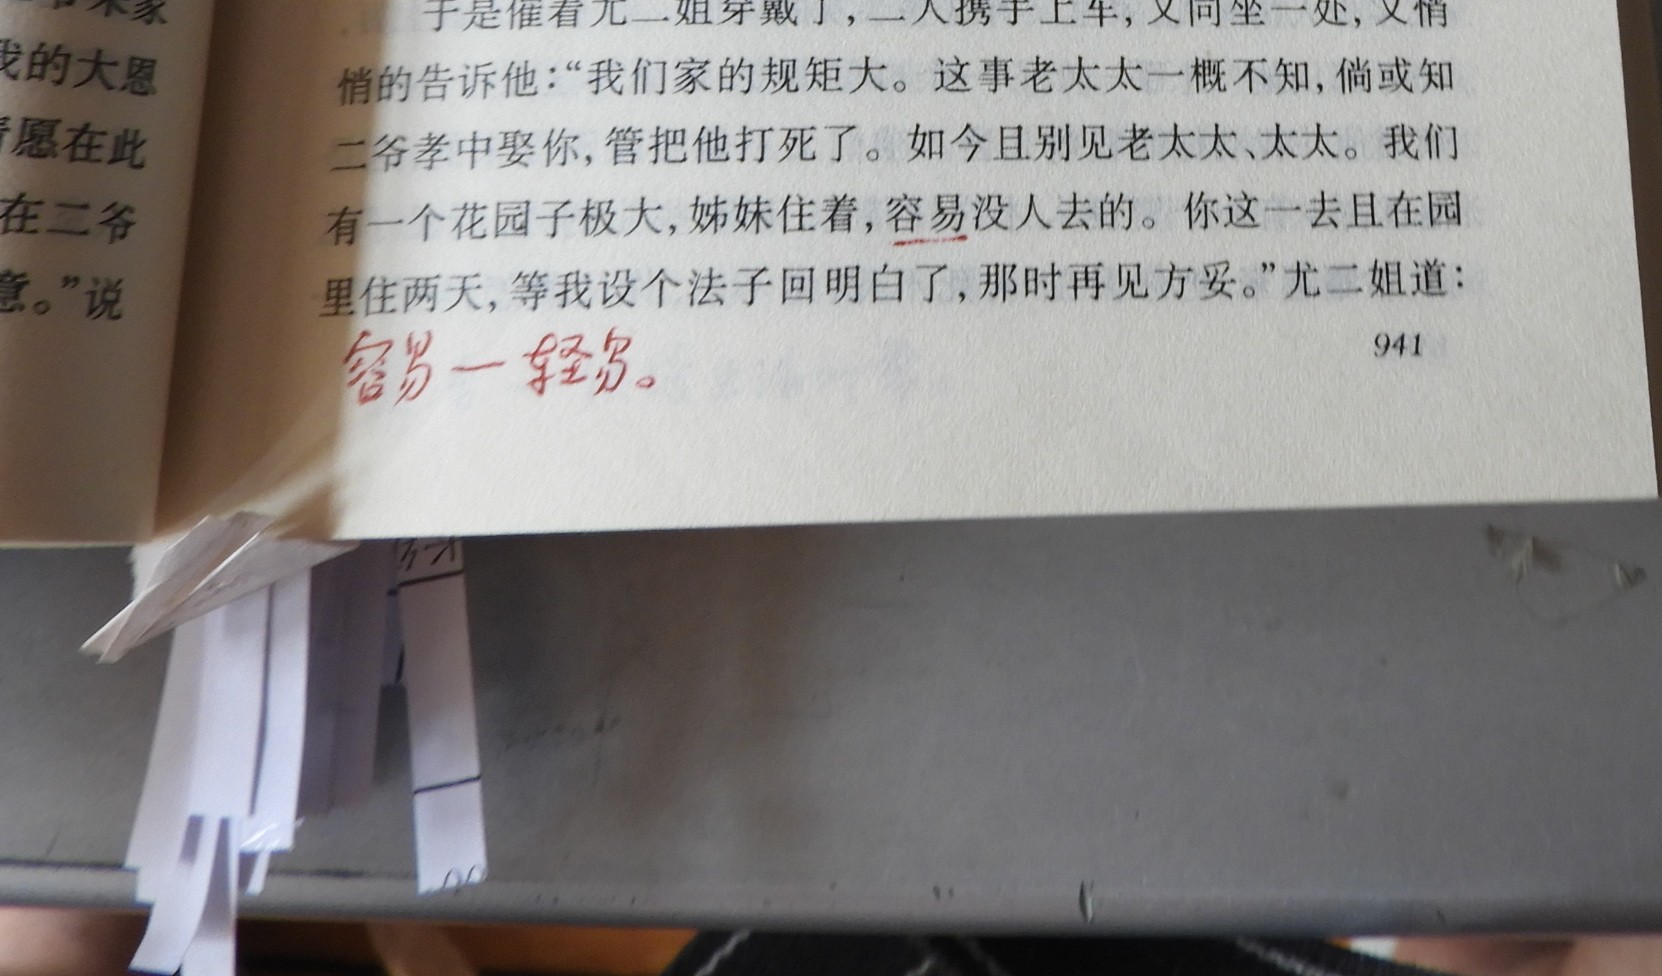 我的大恩
愿在此
在二爷
意。”说
于是催着尤二姐穿戴了，二人携手上车，又同坐一处，又悄
悄的告诉他：“我们家的规矩大。这事老太太一概不知，倘或知
二爷孝中娶你，管把他打死了。如今且别见老太太、太太。我们
有一个花园子极大，姊妹住着，容易没人去的。你这一去且在园
里住两天，等我设个法子回明白了，那时再见方妥。”尤二姐道：
容易一轻易。
941